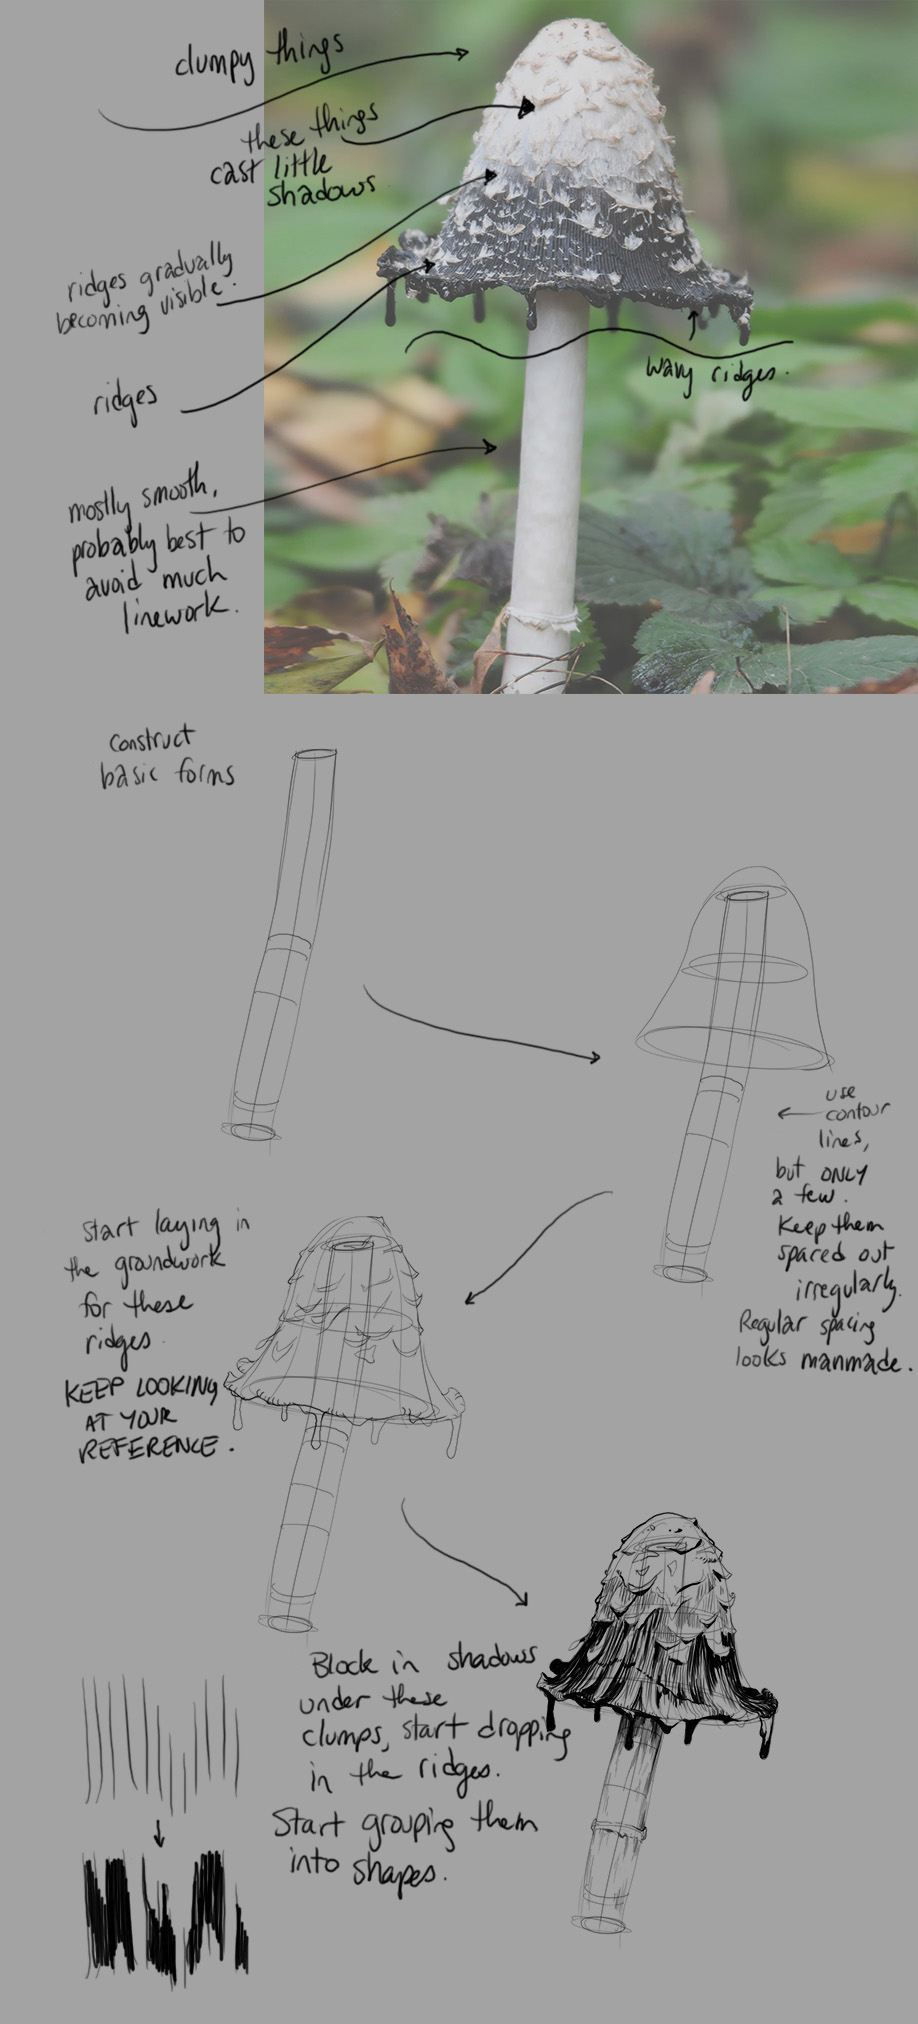 clumpy things
these things
cast little
shadows
ridges gradually
becoming visible.
ridges
wavy ridges.
mostly smooth,
probably best to
avoid much
linework.
construct
basic forms
use
contour
lines,
but ONLY
a few.
Keep them
spaced out
irregularly.
Regular spacing
looks manmade.
Start laying in
the groundwork
for these
ridges.
KEEP LOOKING
AT YOUR
REFERENCE.
Block in shadows
under these
clumps, start dropping
in the ridges.
Start grouping them
into shapes.